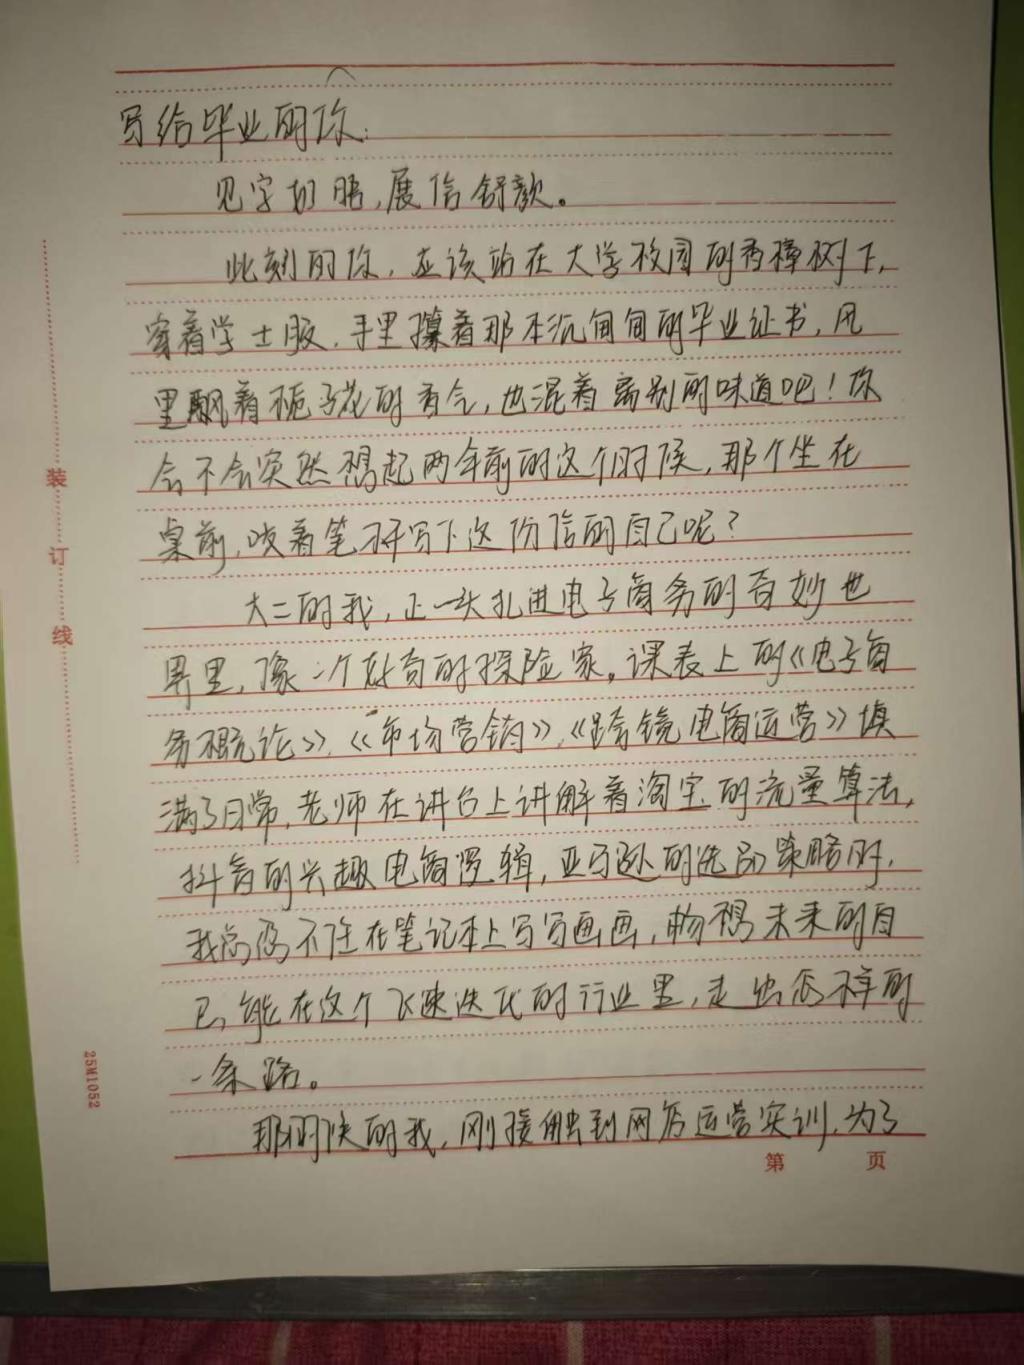 写给毕业的你：
见字如晤，展信舒颜。
此刻的你，应该站在大学校园的香樟树下，
穿着学士服，手里攥着那本沉甸甸的毕业证书，风
里飘着栀子花的香气，也混着离别的味道吧！你
会不会突然想起两年前的这个时候，那个坐在
桌前，咬着笔杆写下这份信的自己呢？
大二的我，正一头扎进电子商务的奇妙世
界里，像一个好奇的探险家。课表上的《电子商
务概论》、《市场营销》、《跨镜电商运营》填
满了日常，老师在讲台上讲解着淘宝的流量算法，
抖音的兴趣电商逻辑，亚马逊的选品策略时，
我总忍不住在笔记本上写写画画，畅想未来的自
己，能在这个飞速迭代的行业里，走出怎样的
一条路。
那时候的我，刚接触到网店运营实训，为了
装
订
线
25M1052
第 页